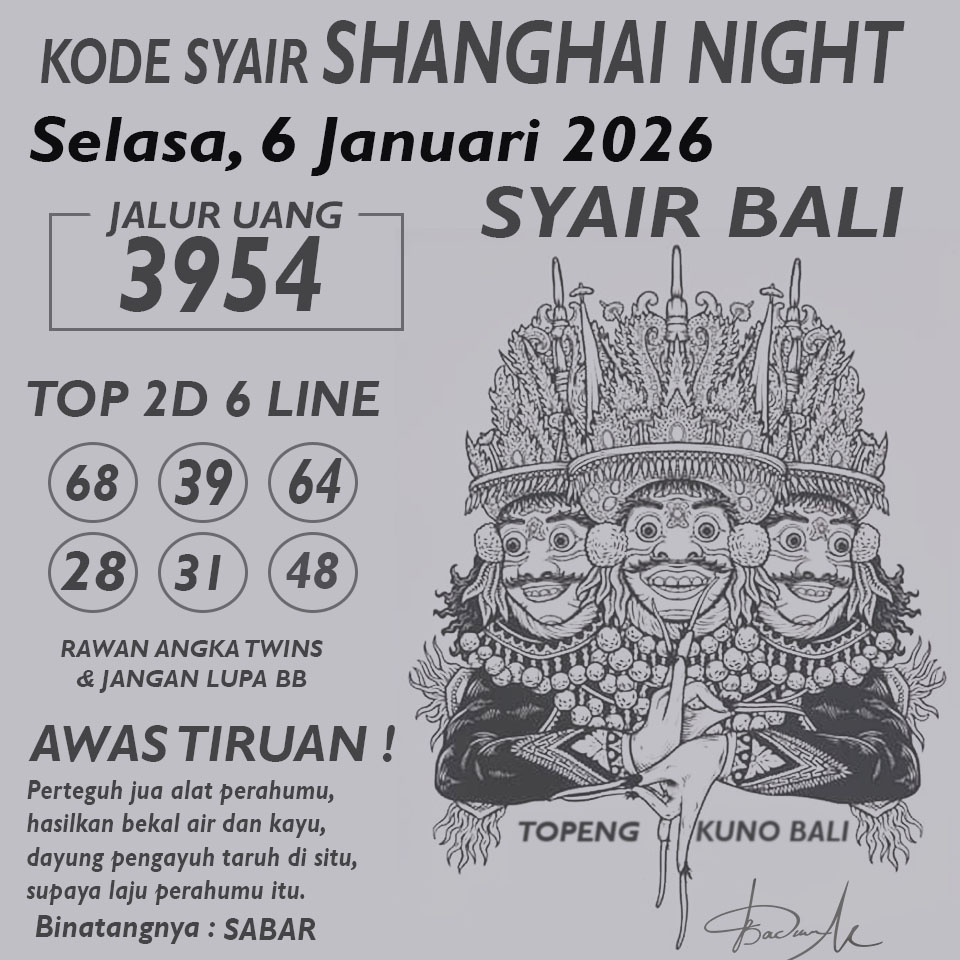 KODE SYAIR SHANGHAI NIGHT
Selasa, 6 Januari 2026
SYAIR BALI
JALUR UANG
3954
TOP 2D 6 LINE
68 39 64
28 31 48
RAWAN ANGKA TWINS
& JANGAN LUPA BB
AWAS TIRUAN !
Perteguh jua alat perahumu,
hasilkan bekal air dan kayu,
dayung pengayuh taruh di situ,
supaya laju perahumu itu.
Binatangnya : SABAR
TOPENG KUNO BALI